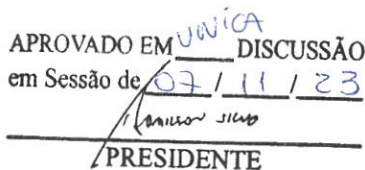 APROVADO EM ÚNICA DISCUSSÃO
em Sessão de 07 / 11 / 23
SILVO
PRESIDENTE